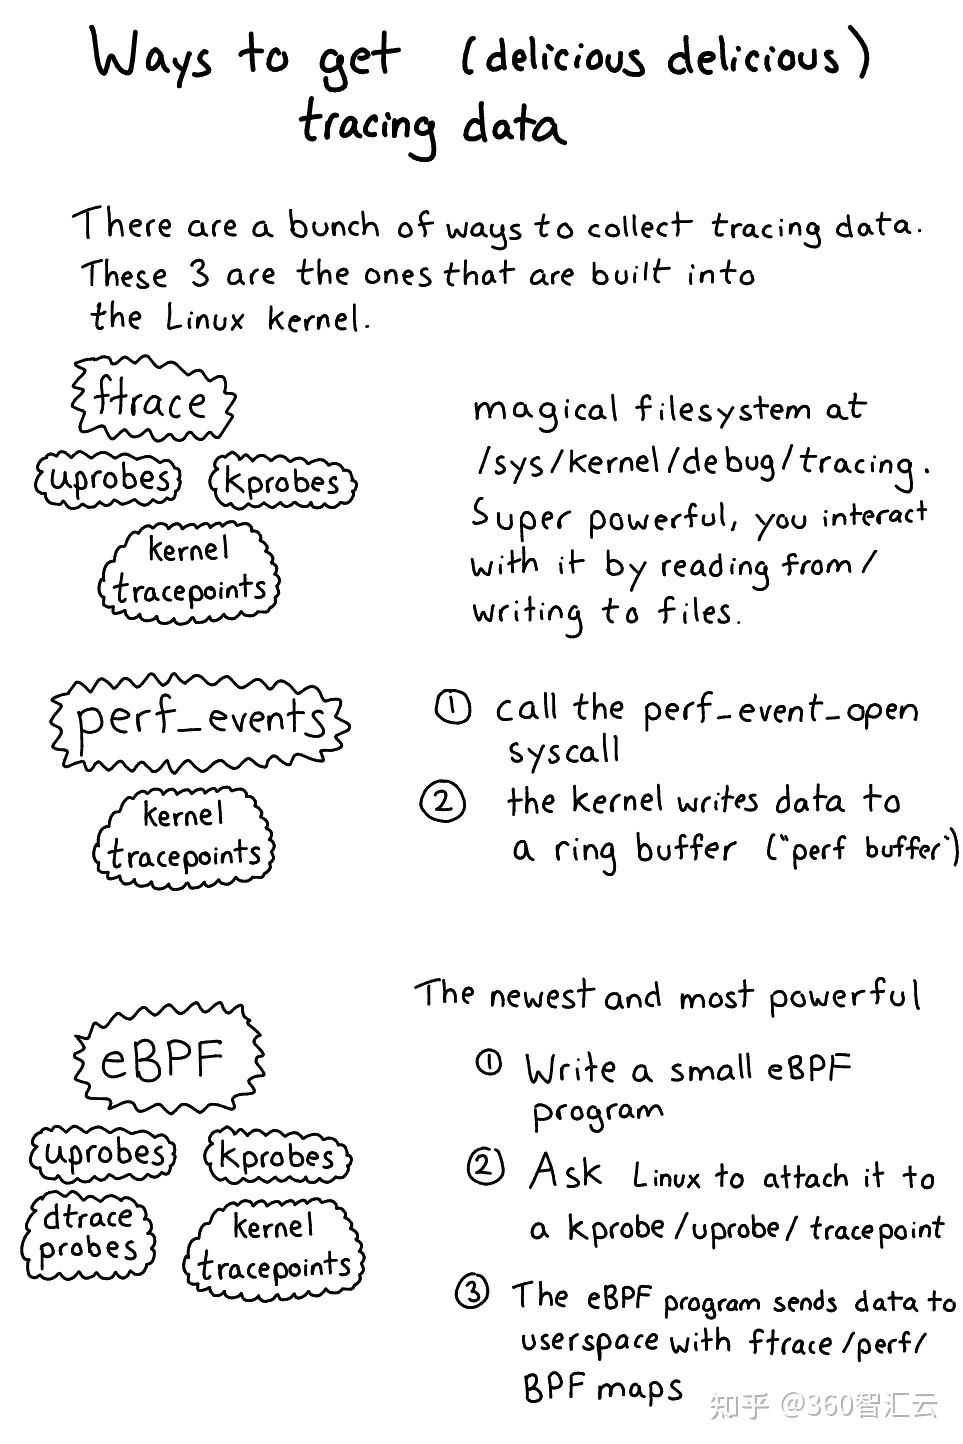 Ways to get (delicious delicious)
tracing data
There are a bunch of ways to collect tracing data.
These 3 are the ones that are built into
the Linux kernel.
ftrace
uprobes kprobes
kernel
tracepoints
magical filesystem at
/sys/kernel/debug/tracing.
Super powerful, you interact
with it by reading from/
writing to files.
perf_events
kernel
tracepoints
① call the perf_event_open
syscall
② the kernel writes data to
a ring buffer ("perf buffer")
eBPF
uprobes kprobes
dtrace
probes
kernel
tracepoints
The newest and most powerful
① Write a small eBPF
program
② Ask Linux to attach it to
a kprobe/uprobe/tracepoint
③ The eBPF program sends data to
userspace with ftrace/perf/
BPF maps
知乎 @360智汇云